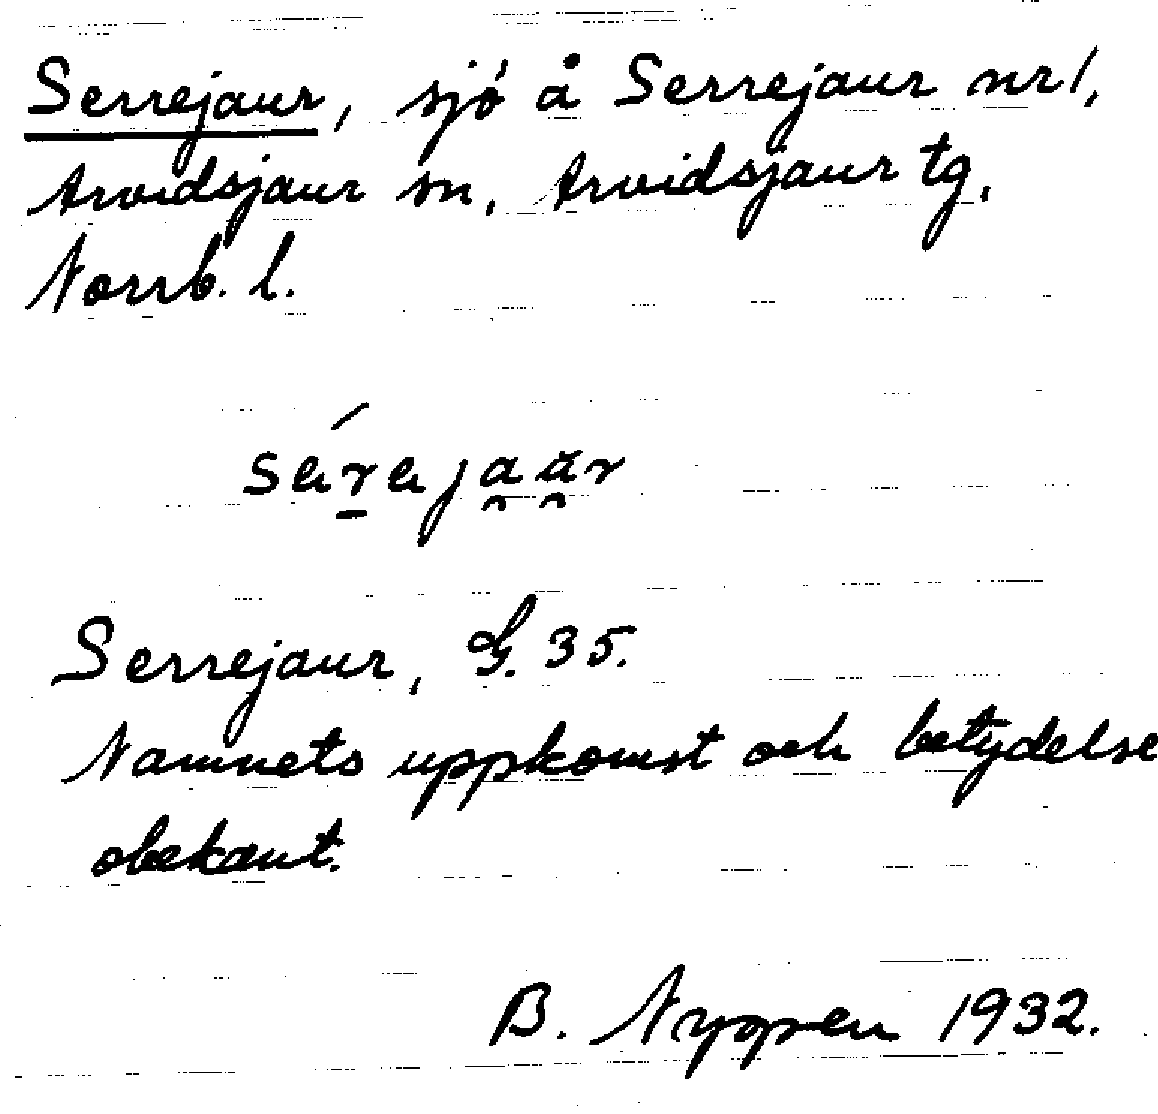 Serrejaur, sjö å Serrejaur nr 1,
Arvidsjaur sn, Arvidsjaur tg,
Norrb. l.
Serrejaur, G. 35.
Namnets uppkomst och betydelse
obekant.
B. Nyppen 1932.